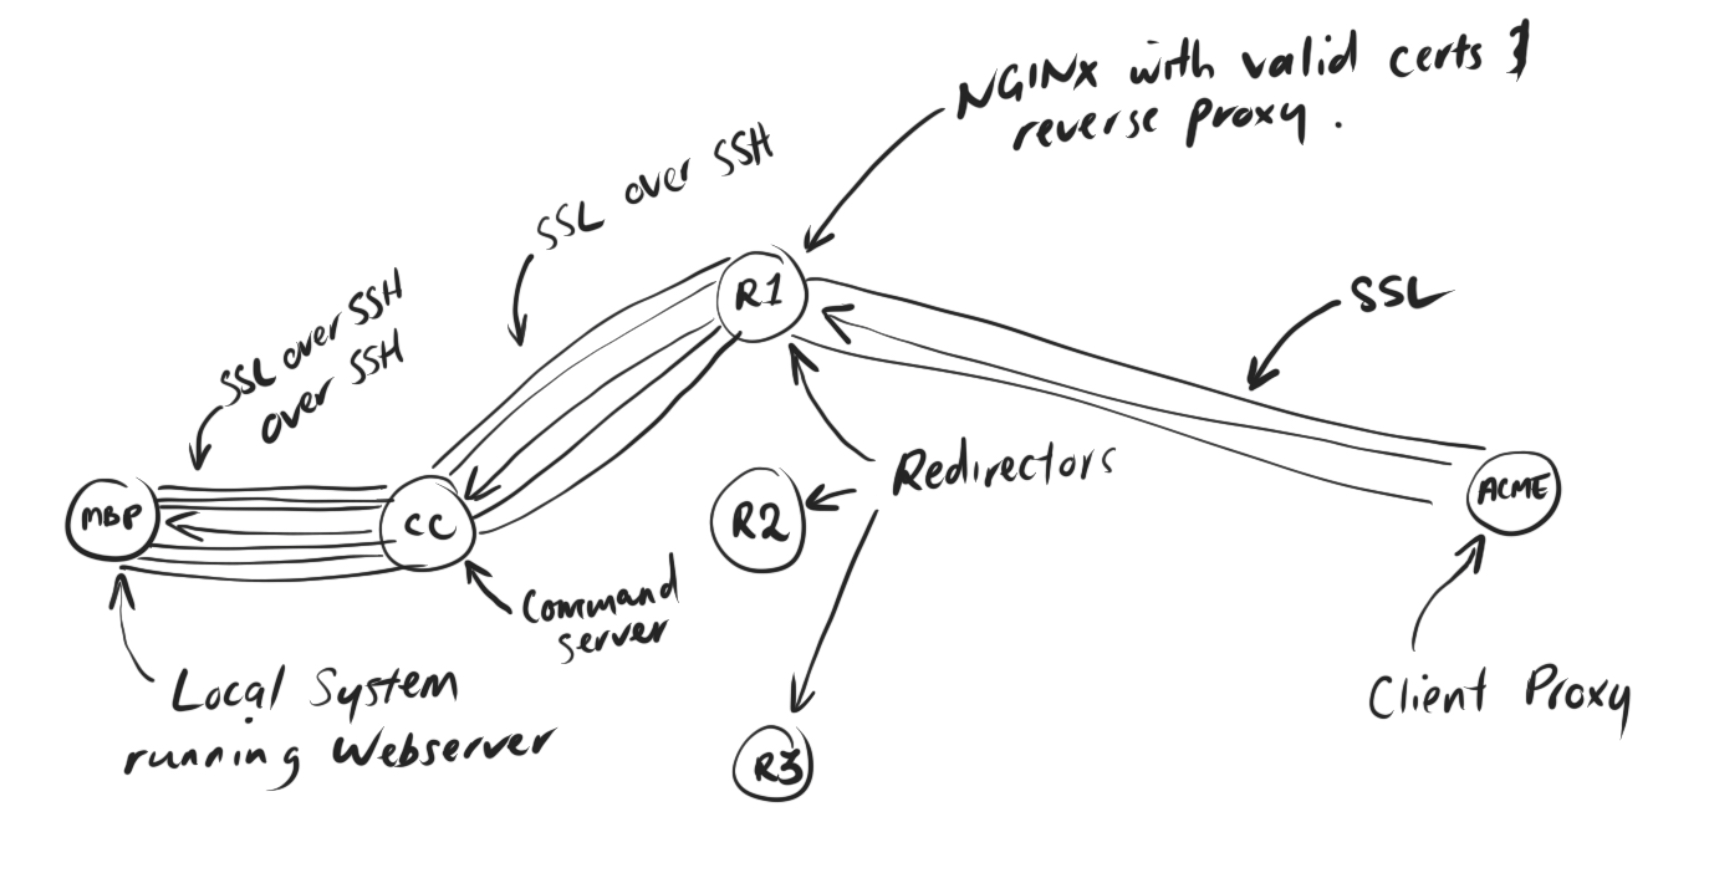 NGINX with valid certs &
reverse proxy.
SSL over SSH
R1
SSL
SSL over SSH
over SSH
Redirectors
MBP
CC
R2
ACME
Command
server
Local System
running Webserver
Client Proxy
R3